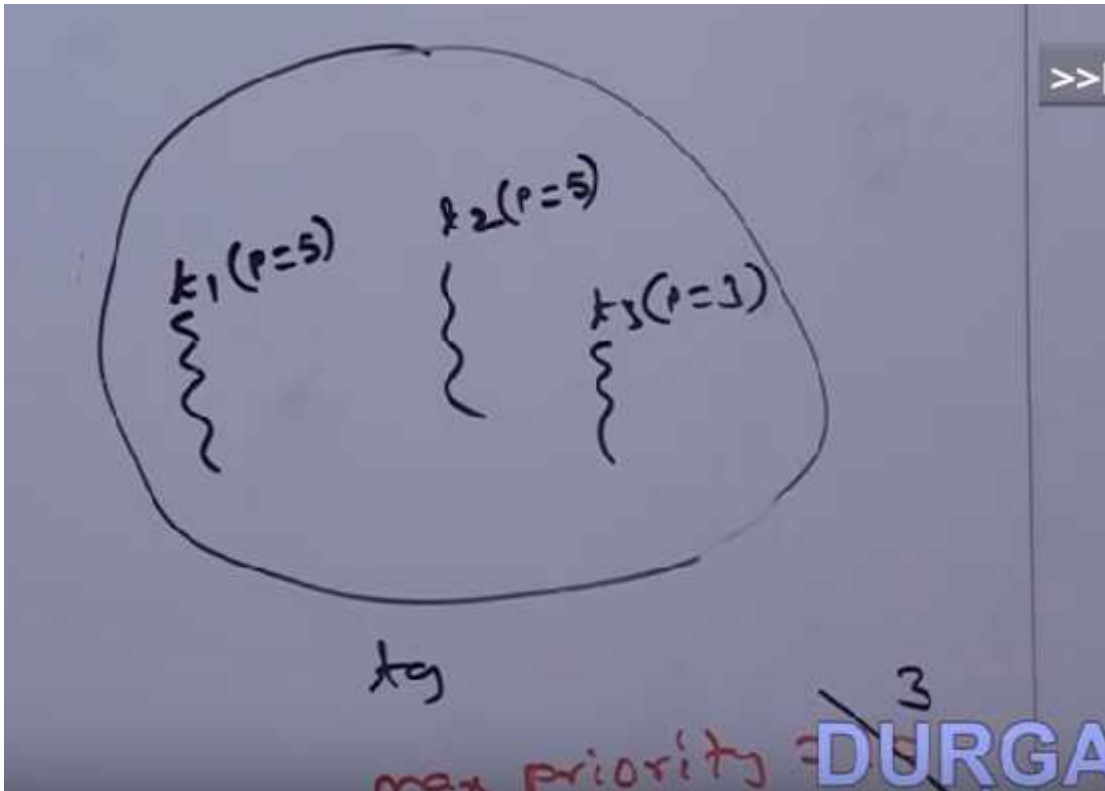 >>
t2(P=5)
t1(P=5)
t3(P=3)
tg
3
max priority =
DURGA